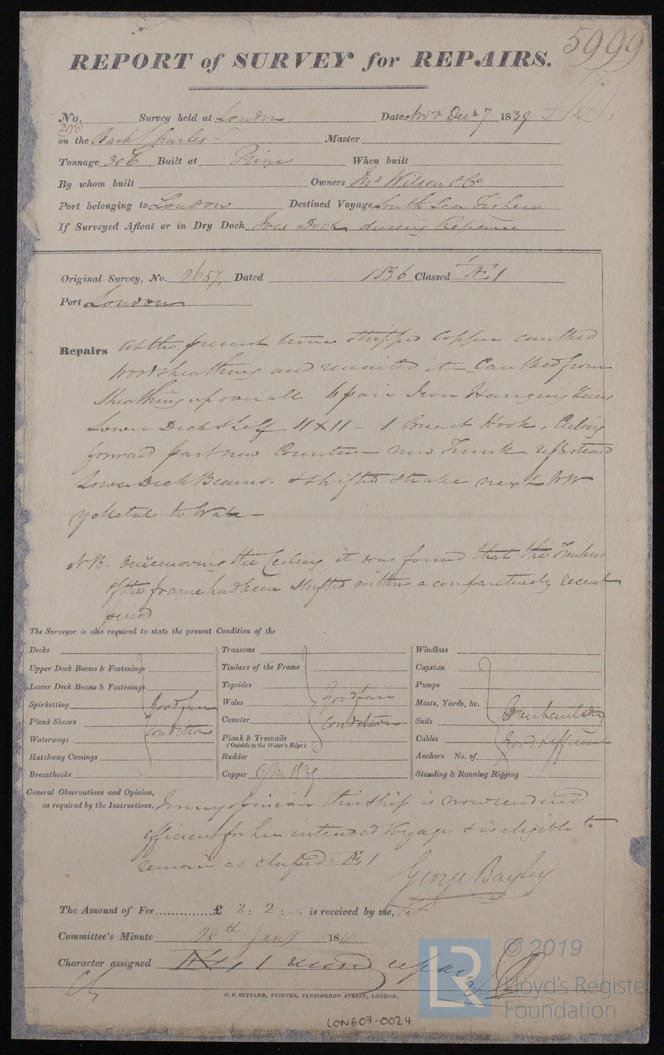 5999
REPORT of SURVEY for REPAIRS.
No. Survey held at London Date Nov & Dec 7 1839
on the Bark Charles Master
Tonnage 306 Built at Prize When built
By whom built Owners Wilson & Co
Port belonging to London Destined Voyage South Sea Fishery
If Surveyed Afloat or in Dry Dock Dock during Repairs
Original Survey, No. 2657 Dated 1836 Classed Æ 1
Port London
Repairs At the present time stripped Copper caulked
Woodsheathing and remetaled it - Caulked from
Sheathing up over all 6 pair Iron Hanging Knees
Lower Deck Shelf 11 x 11 - 1 Breast Hook, Ceiling
forward part new Counter - new Trunk refastened
Lower Deck Beams. & shifted Strake next WW
to Wale -
NB. On removing the Ceiling it was found that the Timbers
of the frame had been shifted within a comparatively recent
period
The Surveyor is also required to state the present Condition of the
Decks Transoms Windlass
Upper Deck Beams & Fastenings Timbers of the Frame Capstan
Lower Deck Beams & Fastenings Topsides Pumps
Spirketting Good Wales Good Masts, Yards, &c.
Plank Shears condition Counter Condition Sails
Waterways Plank & Treenails Cables Good & efficient
(Outside to the Water's Edge)
Hatchway Comings Rudder Anchors No. of
Breasthooks Copper 1839 Standing & Running Rigging
General Observations and Opinion,
as required by the Instructions, In my opinion this ship is now rendered
efficient for her intended Voyage & is eligible to
remain as classed Æ 1
George Bayley
The Amount of Fee £ 2: 2: is received by me,
Committee's Minute 28th Jany 1840
Character assigned Æ 1
C. F. SEYFANG, PRINTER, FARRINGDON STREET, LONDON.
LON607-0024
LR
© 2019
Lloyd's Register
Foundation